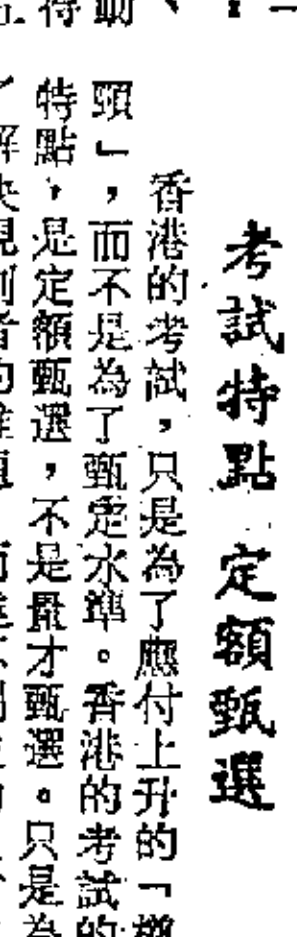 考試特點 定額甄選
香港的考試，只是為了應付上升的「樽
頸」，而不是為了甄定水準。香港的考試的
特點，是定額甄選，不是量才甄選。只是為